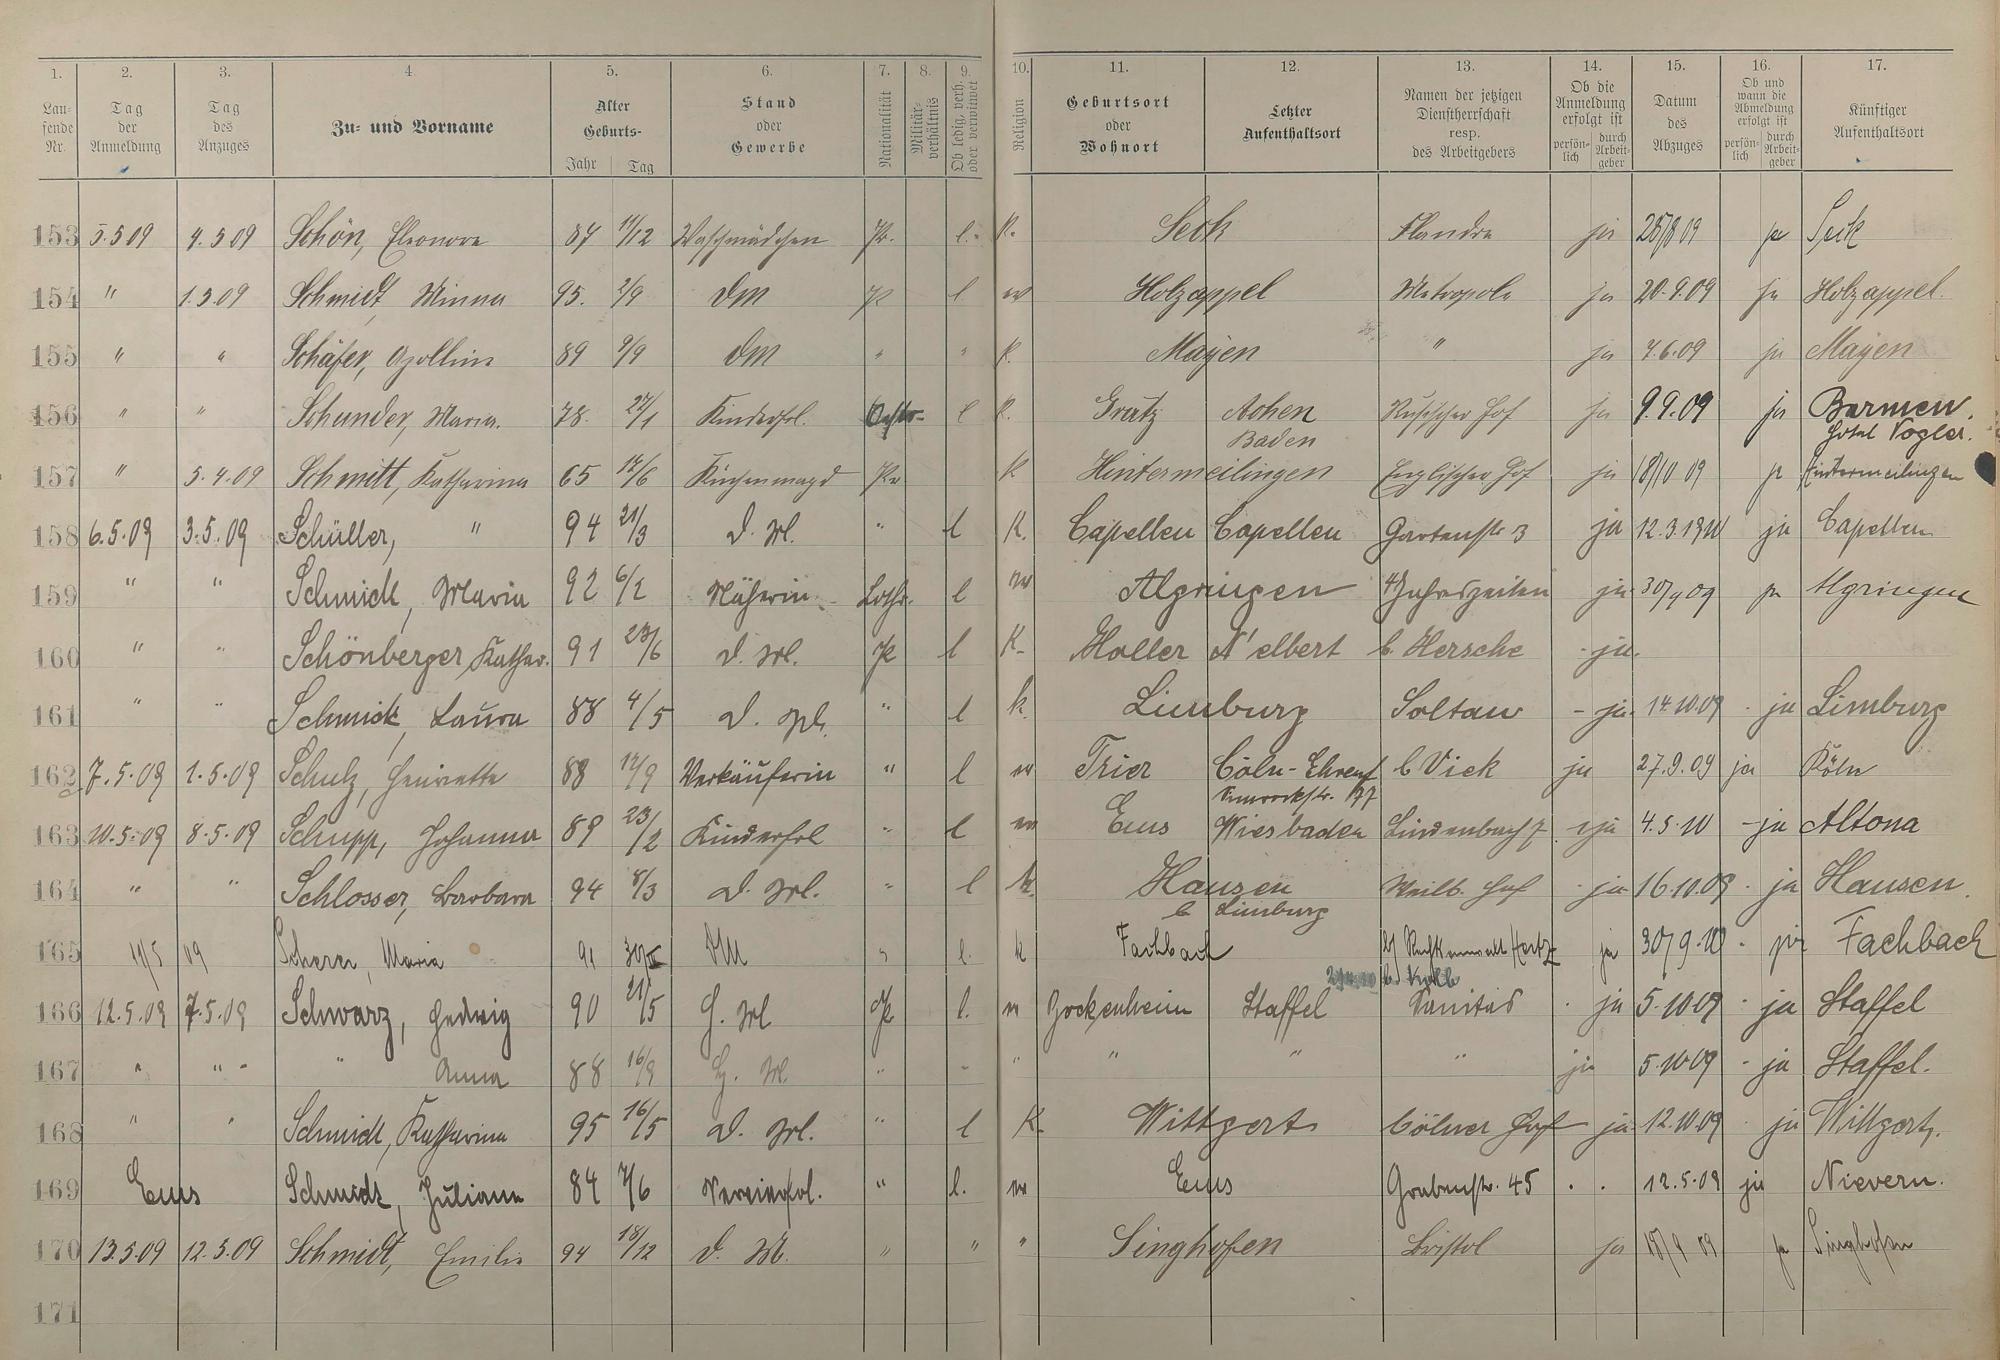 1. 2. 3. 4. 5. 6. 7. 8. 9. 10. 11. 12. 13. 14. 15. 16. 17.
Lau-fende Nr. Tag der Anmeldung Tag des Anzuges Zu- und Vorname Alter Geburts- Jahr Tag Stand oder Gewerbe Nationalität Militär-verhältnis Ob ledig, verh. oder verwitwet Religion Geburtsort oder Wohnort Letzter Aufenthaltsort Namen der jetzigen Dienstherrschaft resp. des Arbeitgebers Ob die Anmeldung erfolgt ist persön-lich durch Arbeit-geber Datum des Abzuges Ob und wann die Abmeldung erfolgt ist persön-lich durch Arbeit-geber Künftiger Aufenthaltsort
153 5.5 09 4.5 09 Schön, Eleonore 87 11/12 Waschmädchen Pr. l. K. Seck Flandre ja 28/8 09 ja Seck
154 " 1.5.09 Schmidt, Minna 95. 2/9 DM Pr l ev Holzappel Metropole ja 20.9.09 ja Holzappel.
155 " " Schäfer, Apollina 89 9/9 DM " " K. Mayen " ja 4.6.09 ja Mayen
156 " " Schunder, Maria. 78. 27/1 Kinderfrl. Oestr. l K. Gratz Achen Russischer Hof ja 9.9.09 ja Barmen.
Baden Hotel Vogler.
157 " 5.4.09 Schmitt, Katharina 65 17/6 Küchenmagd Pr K Hintermeilingen Englischer Hof ja 18/10 09 ja Hintermeilingen
158 6.5.09 3.5.09 Schüller, " 94 21/3 D. M. " l K. Capellen Capellen Gartenstr 3 ja 12.3.1910 ja Capellen
159 " " Schmidt, Maria 92 6/2 Näherin Lothr. l ev Algringen 4 Jahreszeiten ja 30/9 09 ja Algringen
160 " " Schönberger, Kathar. 91 23/6 D. M. Pr l K. Holler N'elbert b. Hersche ja.
161 " " Schmidt, Laura 88 4/5 D. M. " l k. Limburg Soltau - ja. 14.10.09 ja Limburg
162 7.5.09 1.5.09 Schulz, Henriette 88 12/9 Verkäuferin " l ev Trier Cöln-Ehrenf b Vick ja 27.9.09 ja Köln
177
163 10.5.09 8.5.09 Schupp, Johanna 89 23/2 Kinderfrl " l ev Ems Wiesbaden Lindenbach 7 ja 4.5.10 - ja Altona
164 " " Schlosser, Barbara 94 8/3 D. M. " l k. Hausen Weilb. Hof ja 16.10.09 ja Hausen.
b Limburg
165 11/5 09 Scherer, Maria 91 DM " l. k Fachbach b/ Rechtsanwalt ja 30/9.10 ja Fachbach
166 12.5.09 7.5.09 Schwarz, Hedwig 90 21/5 H. M Pr l. ev Bockenheim Staffel Sanitas ja 5.10.09 ja Staffel
167 " " " Anna 88 16/9 H. M. " - " " " " ja 5.10.09 ja Staffel.
168 " " Schmidt, Katharina 95 16/5 D. M. " l K. Wittgert Cölner Hof ja 12.10.09 ja Wittgert.
169 Ems Schmidt, Juliane 84 7/6 " l. ev Ems Grabenstr. 45 . . 12.5.09 ja Nievern.
170 13.5.09 12.5.09 Schmidt, Emilie 94 18/12 D. M. " " " Singhofen Bristol ja 09 ja Singhofen
171